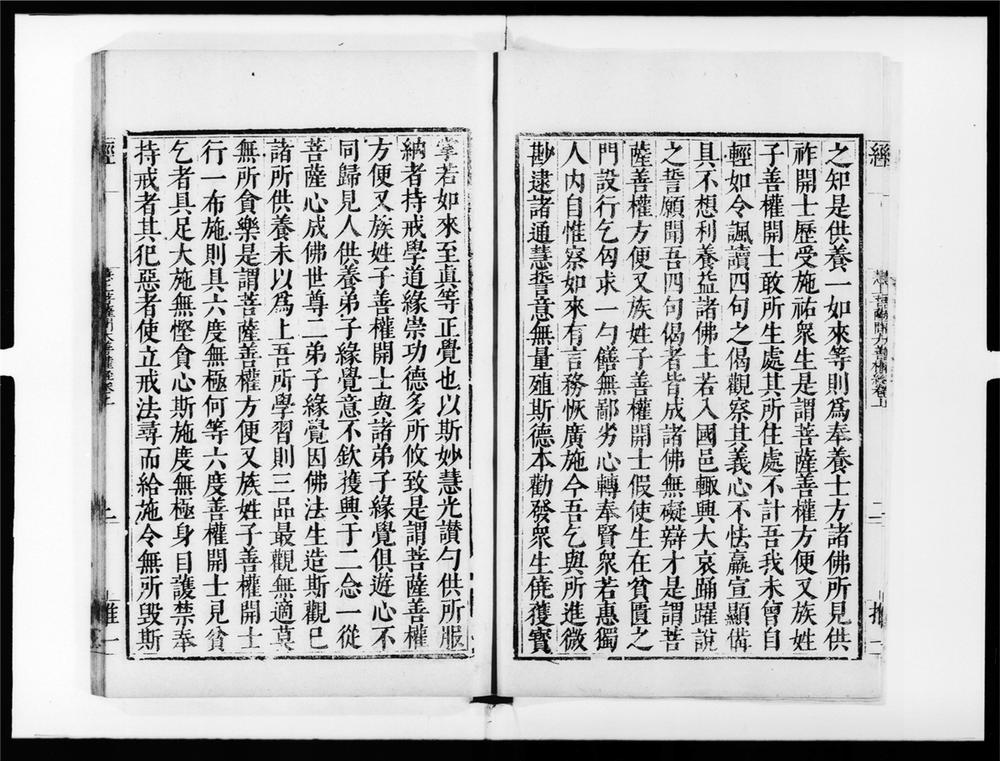 經
之知是供養一如來等則爲奉養十方諸佛所見供
祚開士歷受施祐衆生是謂菩薩善權方便又族姓
子善權開士敢所生處其所住處不計吾我未曾自
輕如令諷讀四句之偈觀察其義心不怯羸宣顯備
具不想利養益諸佛土若入國邑輒興大哀踊躍說
之誓願聞吾四句偈者皆成諸佛無礙辯才是謂菩
薩善權方便又族姓子善權開士假使生在貧匱之
門設行乞匃求一勺饍無鄙劣心轉奉賢衆若惠獨
人内自惟察如來有言務恢廣施今吾乞與所進微
尠逮諸通慧誓意無量殖斯德本勸發衆生僥獲寳
掌若如來至真等正覺也以斯妙慧光讃勻供所服
納者持戒學道緣崇功德多所攸致是謂菩薩善權
方便又族姓子善權開士與諸弟子緣覺俱遊心不
同歸見人供養弟子緣覺意不欽擭興于二念一從
菩薩心成佛世尊二弟子緣覺因佛法生造斯觀已
諸所供養未以爲上吾所學習則三品最觀無適莫
無所貪樂是謂菩薩善權方便又族姓子善權開士
行一布施則具六度無極何等六度善權開士見貧
乞者具足大施無慳貪心斯施度無極身自護禁奉
持戒者其犯惡者使立戒法尋而給施令無所毀斯
經